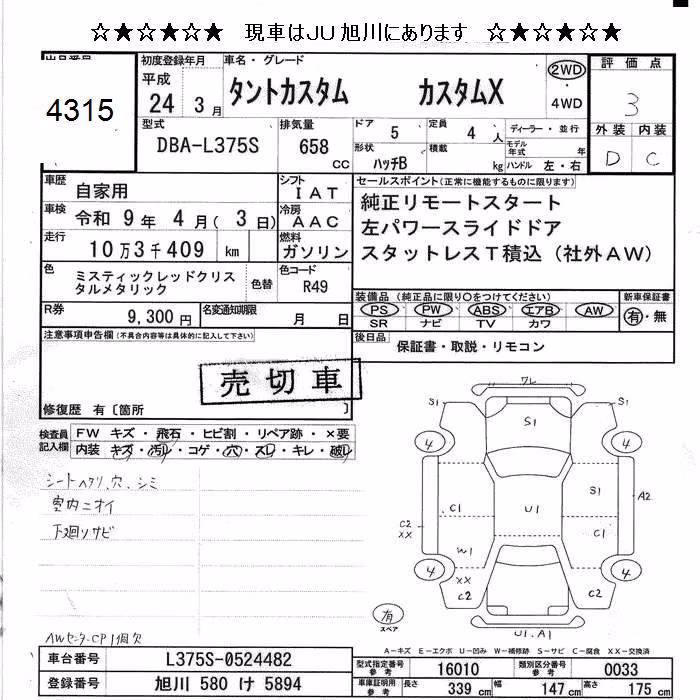 ☆★☆★☆★ 現車はJU旭川にあります ☆★☆★☆★
初度登録年月 車名・グレード 2WD ・ 4WD 評価点
4315 平成 24 3月 タントカスタム カスタムX 3
型式 DBA-L375S 排気量 658 cc ドア 5 定員 4 人 ディーラー・並行 外装 内装
形状 ハッチB 積載 kg モデル年式 年 ハンドル 左・右 D C
車歴 自家用 シフト IAT セールスポイント(正常に機能するものに限ります)
車検 令和 9年 4月(3日) 冷房 AAC 純正リモートスタート
走行 10万3千409 km 燃料 ガソリン 左パワースライドドア
スタットレスT積込(社外AW)
色 ミスティックレッドクリスタルメタリック 色替 色コード R49
装備品(純正品に限り○をつけてください) 新車保証書
PS PW ABS エアB AW 有・無
SR ナビ TV カワ
R券 9,300円 名変通知期限 月 日
後日品 保証書・取説・リモコン
注意事項申告欄(不具合内容等は具体的に記入して下さい)
売切車
修復歴 有〔箇所 〕
検査員記入欄 FW キズ・飛石・ヒビ割・リペア跡・×要
内装 キズ・汚レ・コゲ・穴・スレ・キレ・破レ
シートヘタリ、穴、シミ
室内ニオイ
下廻リサビ
AWセンターCP1個欠
ワレ
S1 S1 S1
4 4
S1 A2
C1 U1 C1
C2 XX
W1
4 4
XX C2 C2
有 スペア
U1.A1
A-キズ E-エクボ U-凹み W-補修跡 S-サビ C-腐食 XX-交換済
車台番号 L375S-0524482 型式指定番号 参考 16010 類別区分番号 参考 0033
登録番号 旭川 580 け 5894 車庫証明用 参考 長さ 339 cm 幅 147 cm 高さ 175 cm